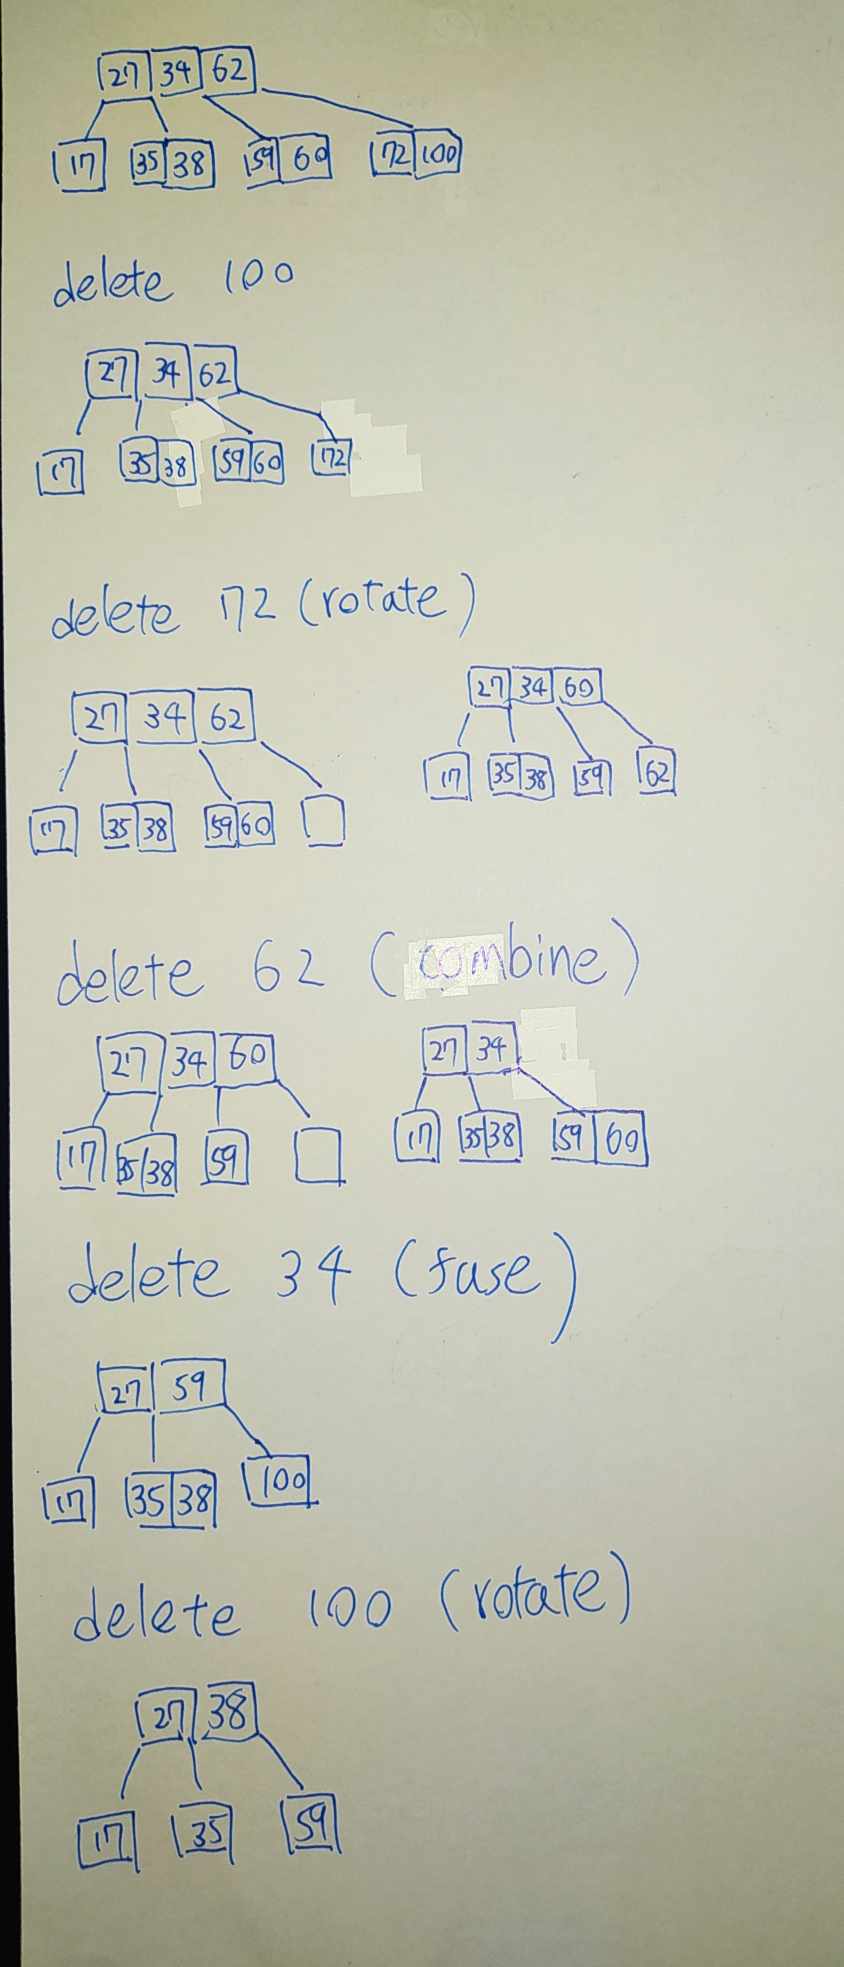 27 34 62
17 35 38 59 60 72 100
delete 100
27 34 62
17 35 38 59 60 72
delete 72 (rotate)
27 34 62
17 35 38 59 60
27 34 60
17 35 38 59 62
delete 62 (combine)
27 34 60
17 35 38 59
27 34
17 35 38 59 60
delete 34 (fuse)
27 59
17 35 38 100
delete 100 (rotate)
27 38
17 35 59